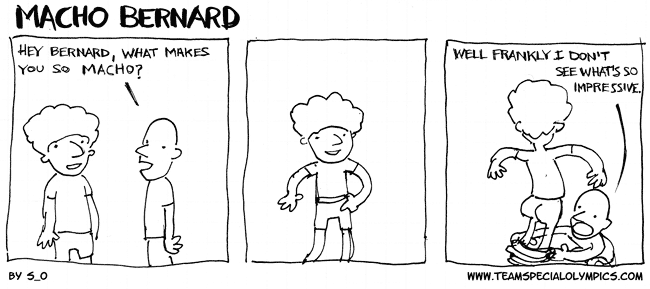 MACHO BERNARD
HEY BERNARD, WHAT MAKES
YOU SO MACHO?
WELL FRANKLY I DON'T
SEE WHAT'S SO
IMPRESSIVE.
BY S_O
WWW.TEAMSPECIALOLYMPICS.COM